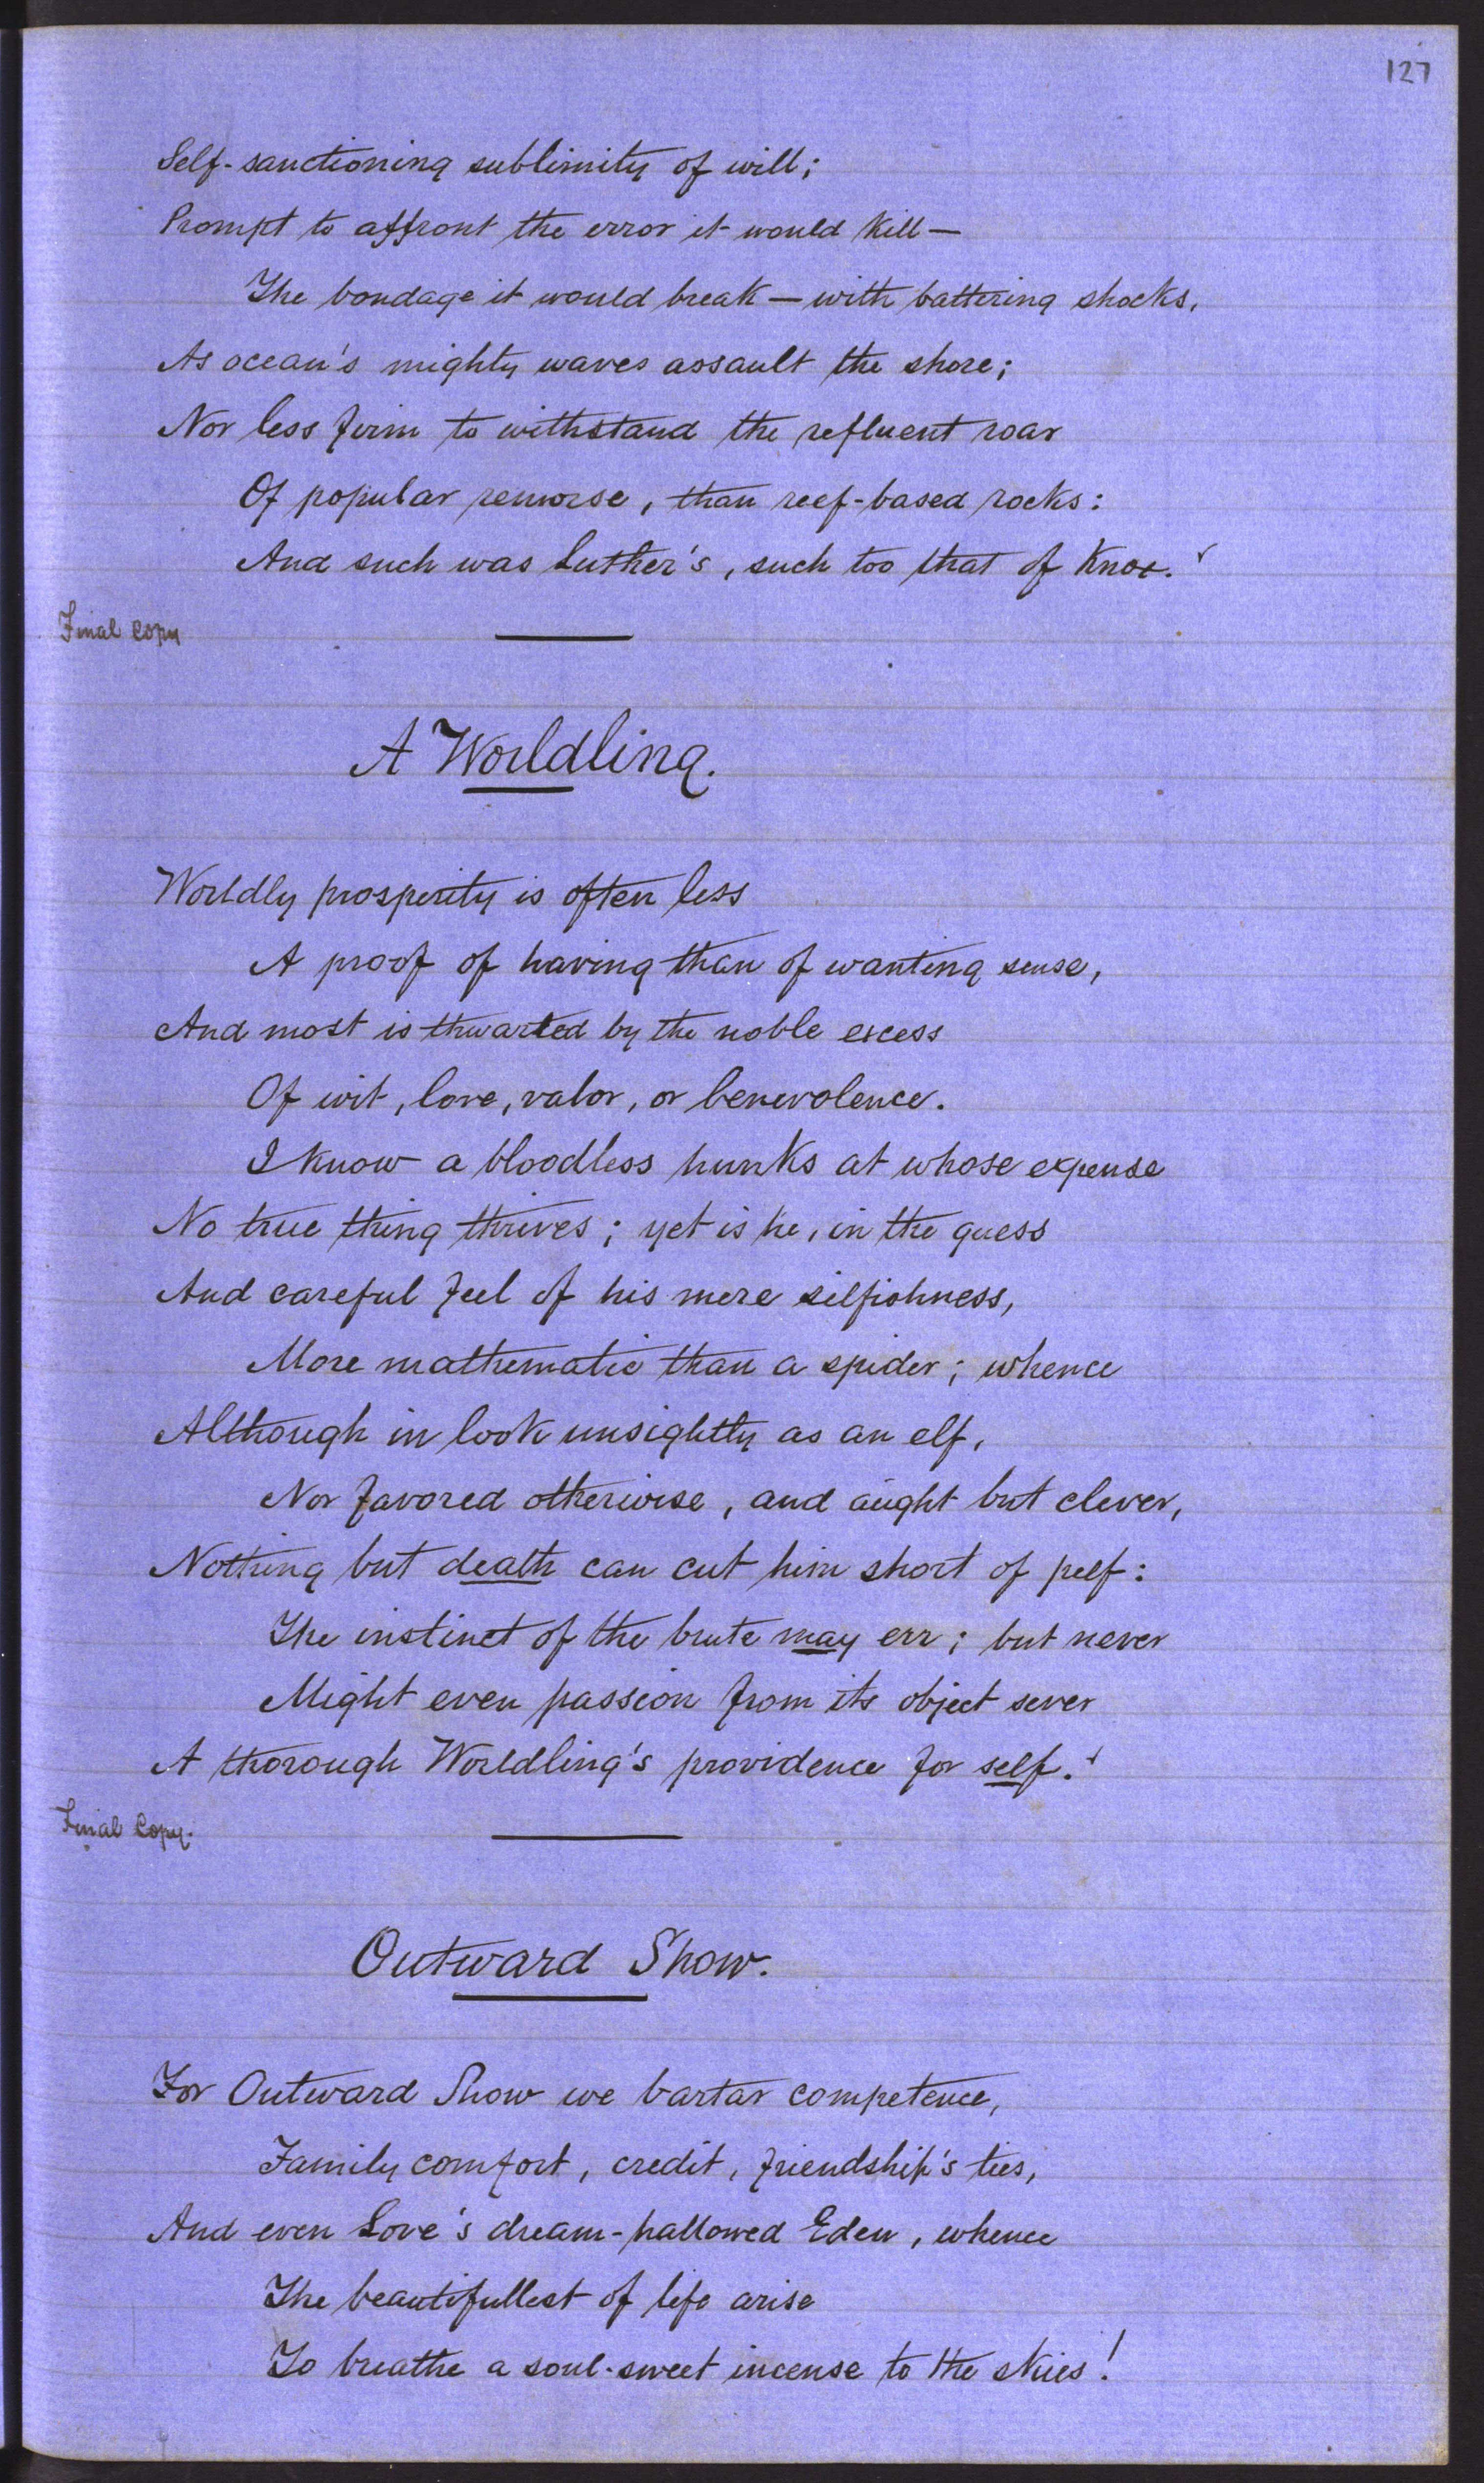 127
Self-sanctioning sublimity of will;
Prompt to affront the error it would kill—
The bondage it would break — with battering shocks,
As ocean's mighty waves assault the shore;
Nor less firm to withstand the refluent roar
Of popular remorse, than reef-based rocks:
And such was Luther's, such too that of Knox.
Final copy
A Worldling.
Worldly prosperity is often less
A proof of having than of wanting sense,
And most is thwarted by the noble excess
Of wit, love, valor, or benevolence.
I know a bloodless hunks at whose expense
No true thing thrives; yet is he, in the guess
And careful feel of his mere selfishness,
More mathematic than a spider; whence
Although in look unsightly as an elf,
Nor favored otherwise, and aught but clever,
Nothing but death can cut him short of pelf:
The instinct of the brute may err; but never
Might even passion from its object sever
A thorough Worldling's providence for self.
Final Copy.
Outward Show.
For Outward Show we bartar competence,
Family comfort, credit, friendship's ties,
And even Love's dream-hallowed Eden, whence
The beautifullest of life arise
To breathe a soul-sweet incense to the skies!